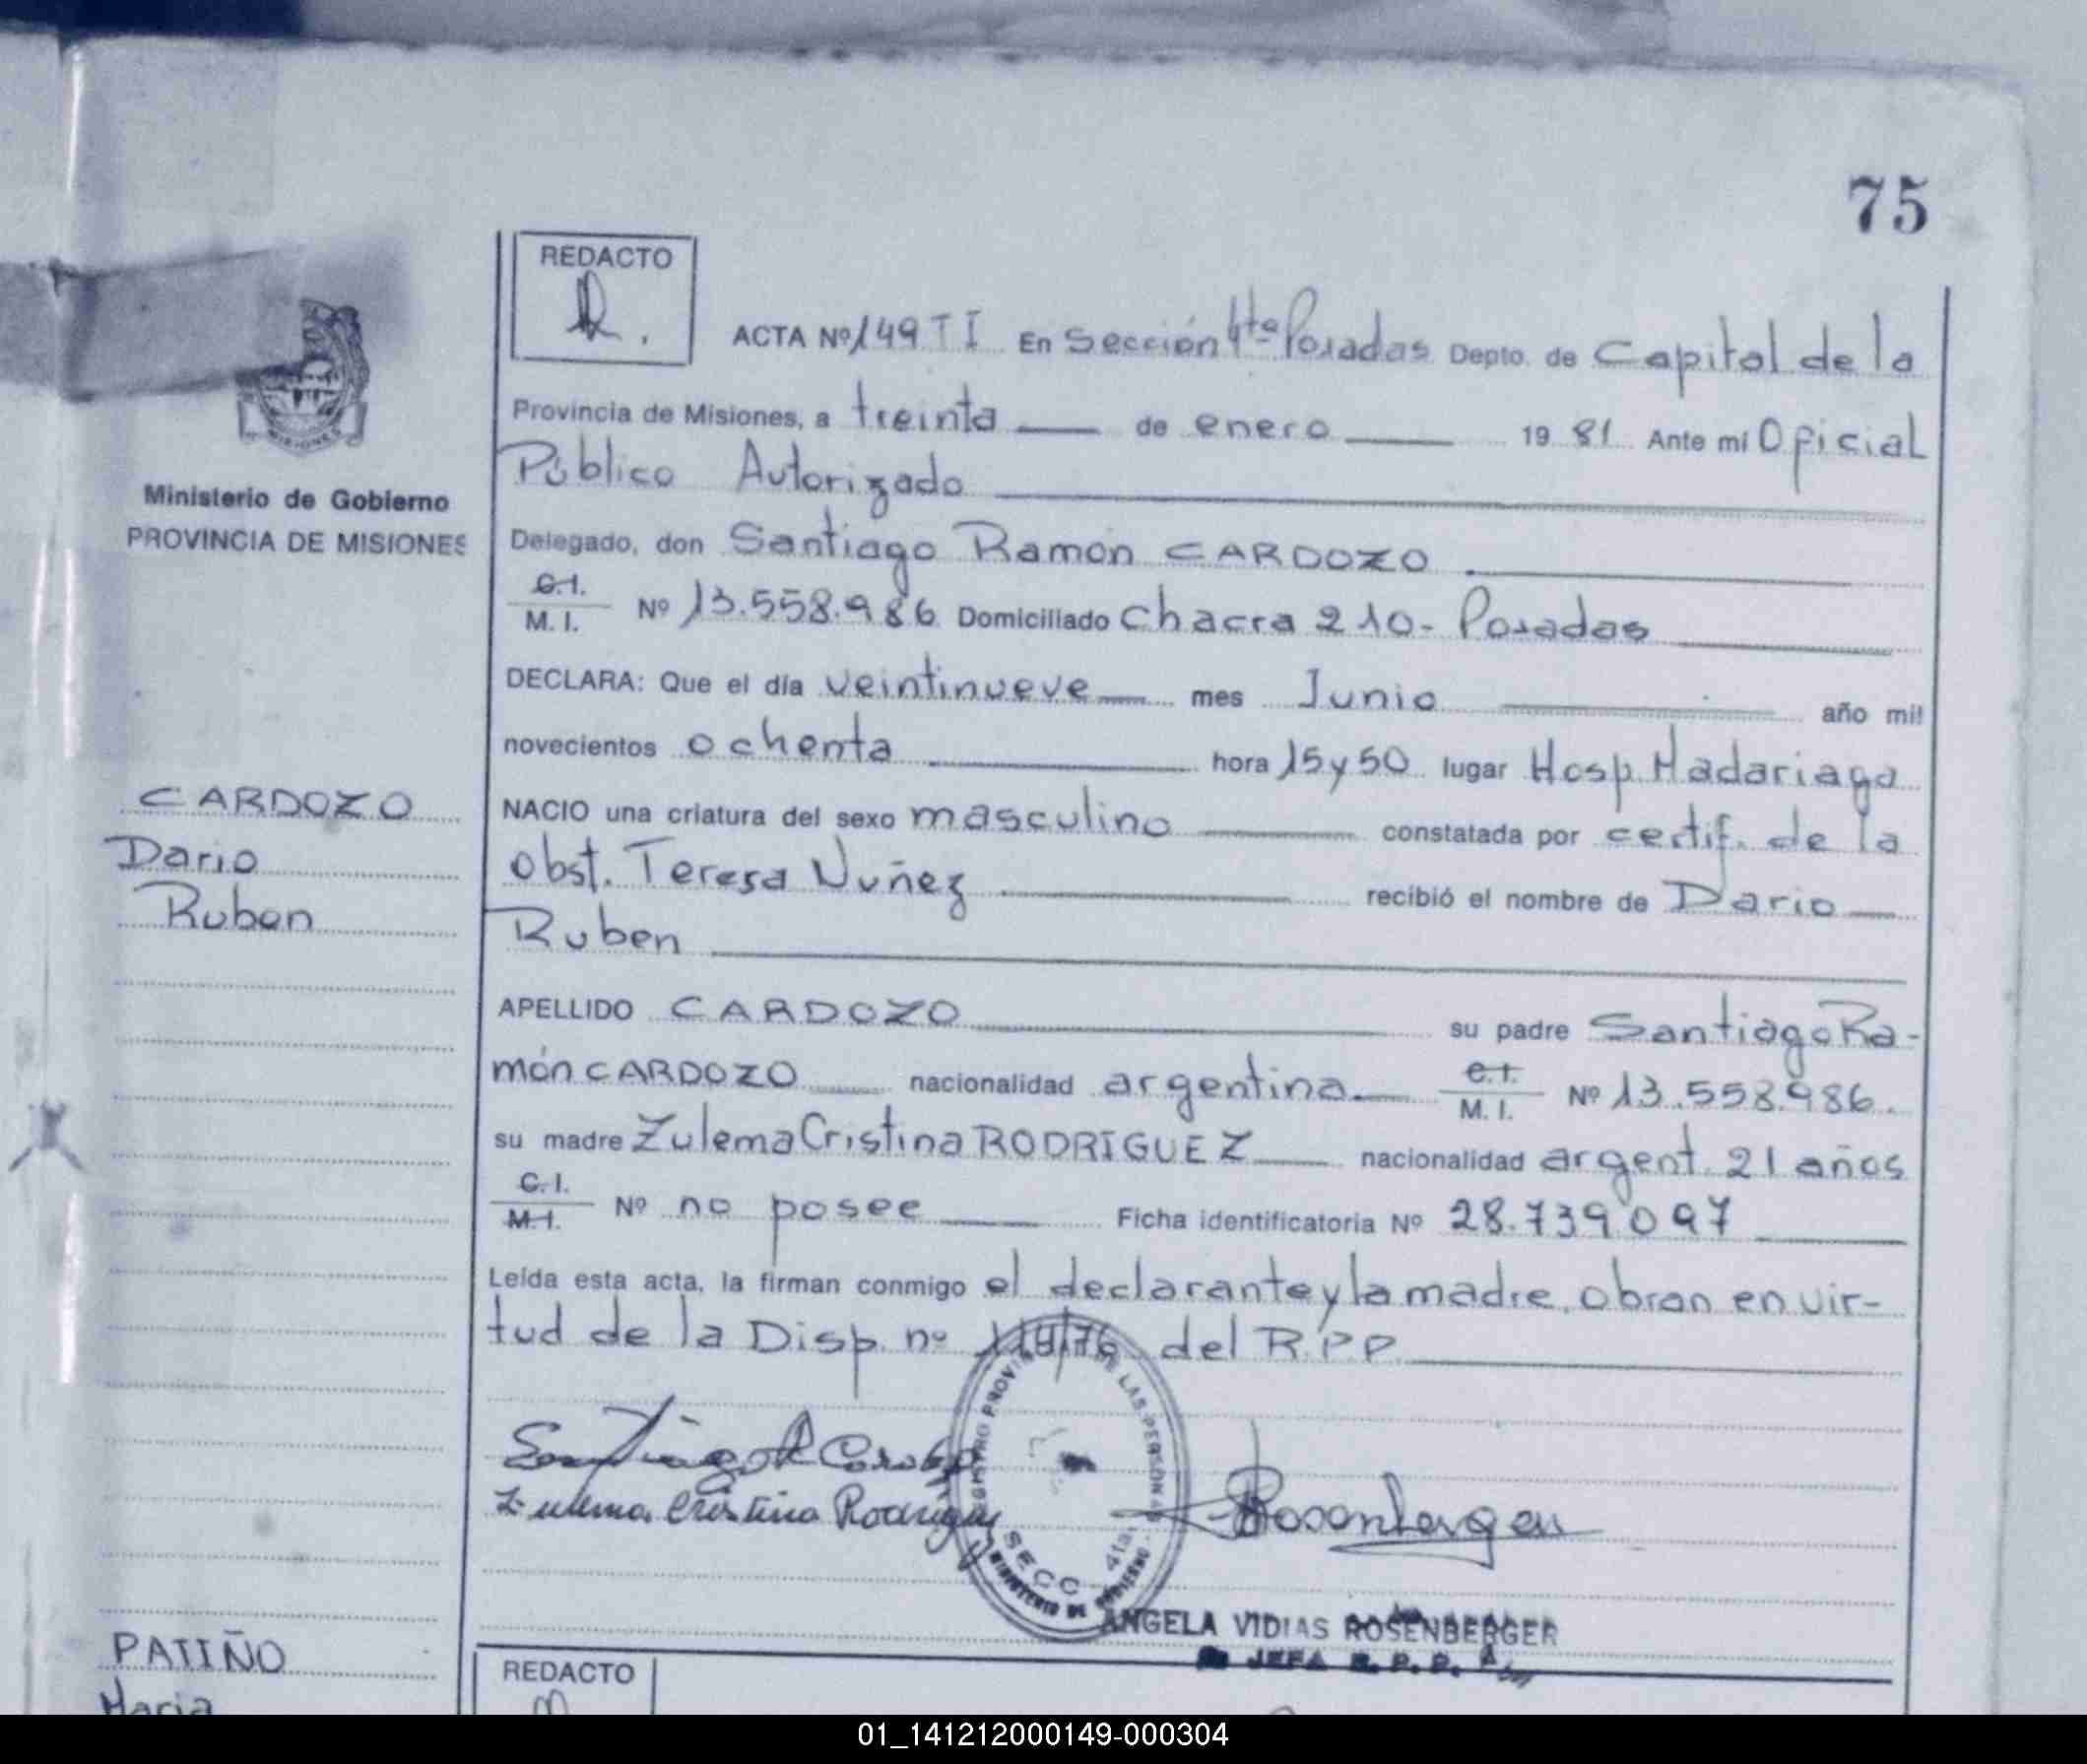 75
REDACTO
ACTA Nº 149 T I En Sección 4ta Posadas Depto. de Capital de la
Provincia de Misiones, a treinta de enero 19 81 Ante mí Oficial
Público Autorizado
Ministerio de Gobierno
PROVINCIA DE MISIONES
Delegado, don Santiago Ramón CARDOZO
C.I.
M. I. Nº 13.558.986 Domiciliado Chacra 210 - Posadas
DECLARA: Que el día veintinueve mes Junio año mil
novecientos ochenta hora 15 y 50 lugar Hosp. Madariaga
CARDOZO
Dario
Ruben
NACIO una criatura del sexo masculino constatada por certif. de la
obst. Teresa Nuñez recibió el nombre de Dario
Ruben
APELLIDO CARDOZO su padre Santiago Ra-
món CARDOZO nacionalidad argentina C.I.
M. I. Nº 13.558.986.
su madre Zulema Cristina RODRIGUEZ nacionalidad argent. 21 años
C.I.
M.I. Nº no posee Ficha identificatoria Nº 28.739.097
Leída esta acta, la firman conmigo el declarante y la madre, obran en vir-
tud de la Disp. nº /76 del R.P.P.
Santiago R Cardozo
Zulema Cristina Rodriguez
Rosenberger
REGISTRO PROVIN DE LAS PERSONAS
SECC 4ta.
MINISTERIO DE GOBIERNO
ANGELA VIDIAS ROSENBERGER
JEFA R. P. P.
PATIÑO
Maria
REDACTO
01_141212000149-000304